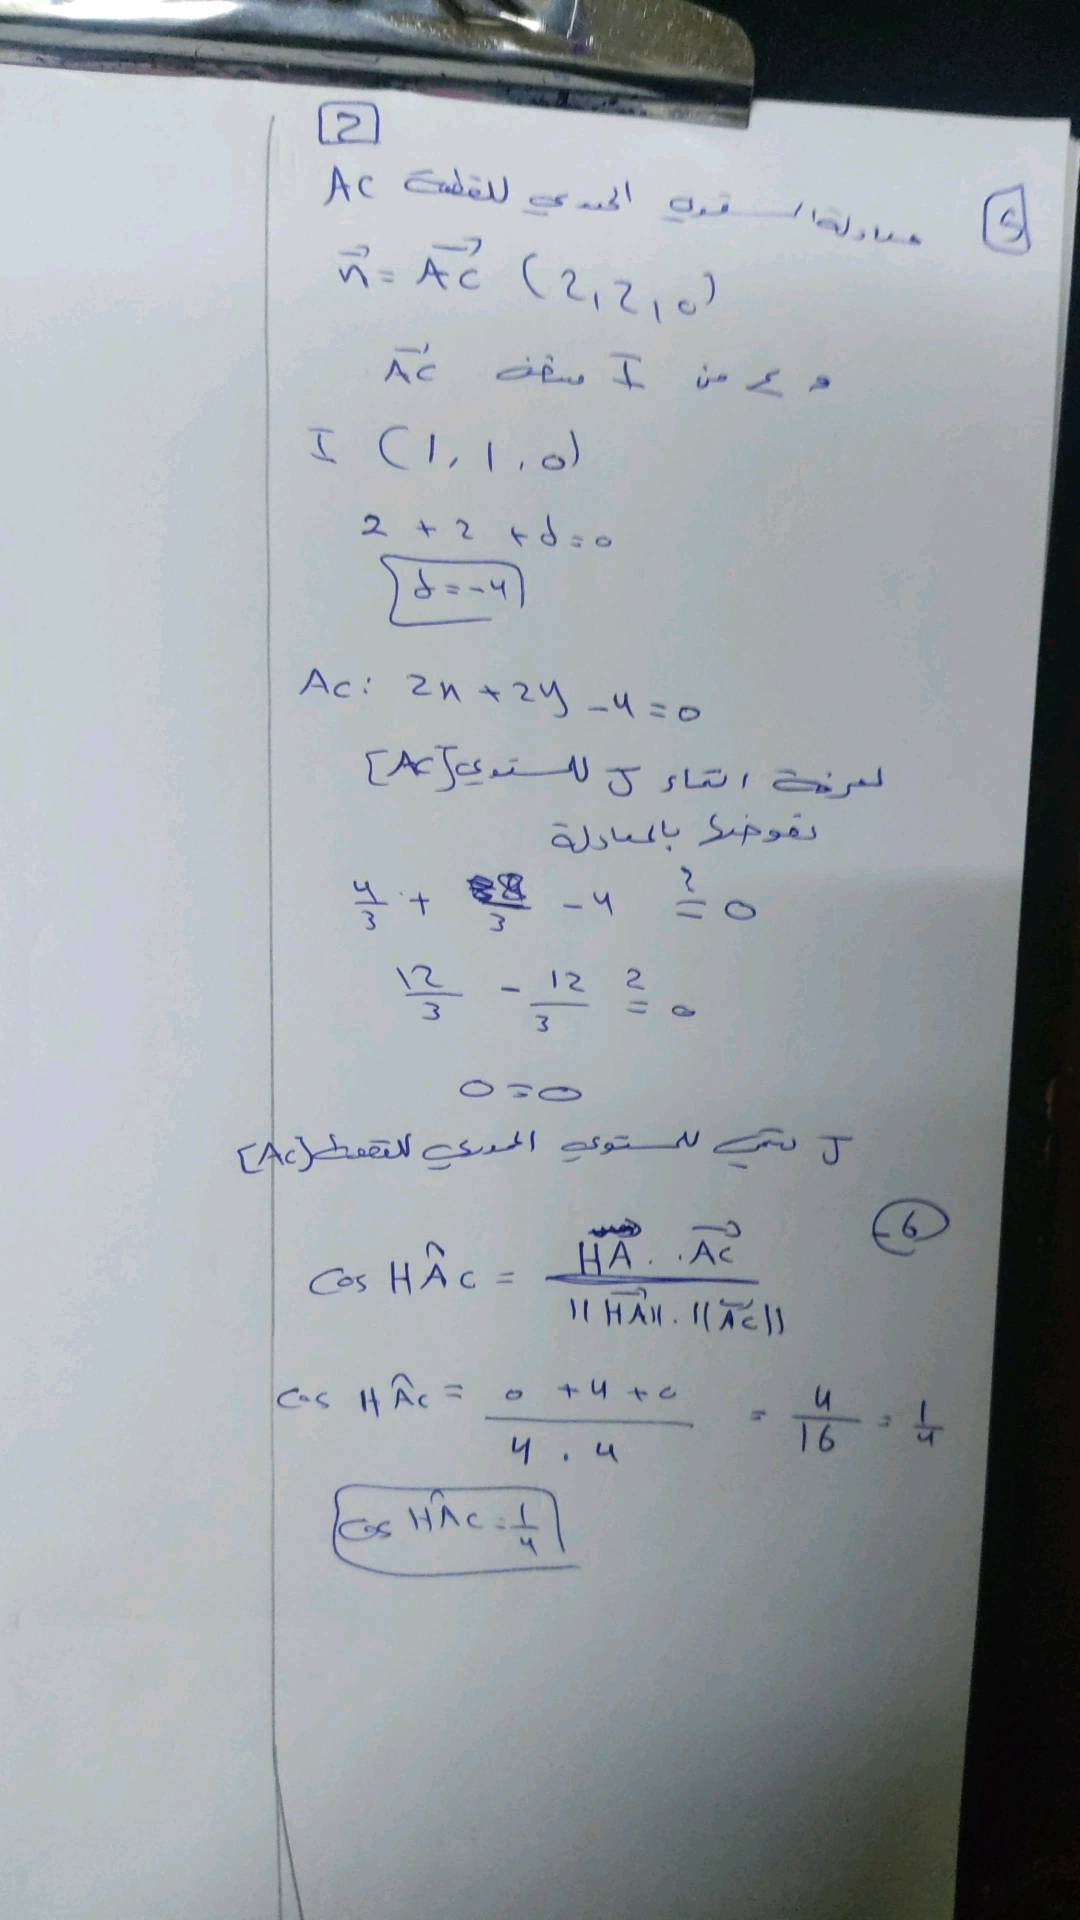 2
5 معادلة المستوي المحوري للقطعة AC
n⃗ = AC⃗ (2, 2, 0)
I منتصف AC⃗
I (1, 1, 0)
2 + 2 + d = 0
d = -4
AC: 2x + 2y - 4 = 0
لمعرفة انتماء J للمستوي [AC]
نعوضها بالمعادلة
4/3 + 8/3 - 4 ?= 0
12/3 - 12/3 ?= 0
0 = 0
J تنتمي للمستوي المحوري للقطعة [AC]
6-
cos HÂC = HA⃗ . AC⃗ / ||HA⃗|| . ||AC⃗||
cos HÂC = 0 + 4 + 0 / 4 . 4 = 4/16 = 1/4
cos HÂC = 1/4